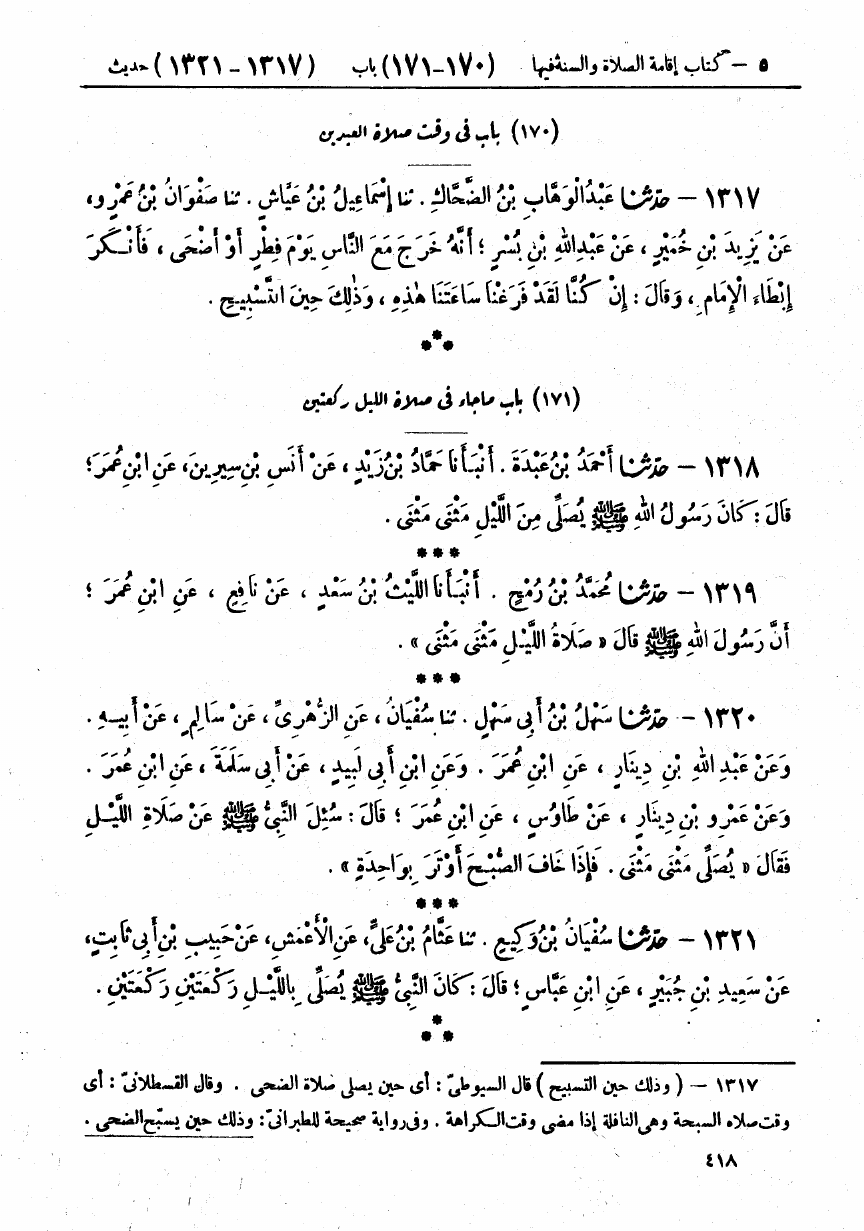 ٥ – كتاب إقامة الصلاة والسنة فيها (١٧٠–١٧١) باب (١٣١٧ – ١٣٢١) حديث
(١٧٠) باب فى وقت صلاة العيدين
١٣١٧ – حدثنا عَبْدُ الْوَهَّابِ بْنُ الضَّحَّاكِ . ثنا إِسْمَاعِيلُ بْنُ عَيَّاشٍ . ثنا صَفْوَانُ بْنُ عَمْرٍو،
عَنْ يَزِيدَ بْنِ خُمَيْرٍ ، عَنْ عَبْدِ اللهِ بْنِ بُسْرٍ ؛ أَنَّهُ خَرَجَ مَعَ النَّاسِ يَوْمَ فِطْرٍ أَوْ أَضْحَى ، فَأَنْكَرَ
إِبْطَاءَ الْإِمَامِ ، وَقَالَ : إِنْ كُنَّا لَقَدْ فَرَغْنَا سَاعَتَنَا هٰذِهِ ، وَذٰلِكَ حِينَ التَّسْبِيحِ .
***
(١٧١) باب ماجاء فى صلاة الليل ركعتين
١٣١٨ – حدثنا أَحْمَدُ بْنُ عَبْدَةَ . أَنْبَأَنَا حَمَّادُ بْنُ زَيْدٍ ، عَنْ أَنَسِ بْنِ سِيرِينَ، عَنِ ابْنِ عُمَرَ؛
قَالَ : كَانَ رَسُولُ اللهِ ﷺ يُصَلِّى مِنَ اللَّيْلِ مَثْنَى مَثْنَى .
***
١٣١٩ – حدثنا مُحَمَّدُ بْنُ رُمْحٍ . أَنْبَأَنَا اللَّيْثُ بْنُ سَعْدٍ ، عَنْ نَافِعٍ ، عَنِ ابْنِ عُمَرَ ؛
أَنَّ رَسُولَ اللهِ ﷺ قَالَ « صَلَاةُ اللَّيْلِ مَثْنَى مَثْنَى » .
***
١٣٢٠ – حدثنا سَهْلُ بْنُ أَبِى سَهْلٍ . ثنا سُفْيَانُ ، عَنِ الزُّهْرِىِّ ، عَنْ سَالِمٍ ، عَنْ أَبِيهِ .
وَعَنْ عَبْدِ اللهِ بْنِ دِينَارٍ ، عَنِ ابْنِ عُمَرَ . وَعَنِ ابْنِ أَبِى لَبِيدٍ ، عَنْ أَبِى سَلَمَةَ ، عَنِ ابْنِ عُمَرَ .
وَعَنْ عَمْرِو بْنِ دِينَارٍ ، عَنْ طَاوُسٍ ، عَنِ ابْنِ عُمَرَ ؛ قَالَ : سُئِلَ النَّبِىُّ ﷺ عَنْ صَلَاةِ اللَّيْلِ
فَقَالَ « يُصَلِّى مَثْنَى مَثْنَى . فَإِذَا خَافَ الصُّبْحَ أَوْتَرَ بِوَاحِدَةٍ » .
***
١٣٢١ – حدثنا سُفْيَانُ بْنُ وَكِيعٍ . ثنا عَثَّامُ بْنُ عَلِىٍّ، عَنِ الْأَعْمَشِ، عَنْ حَبِيبِ بْنِ أَبِى ثَابِتٍ،
عَنْ سَعِيدِ بْنِ جُبَيْرٍ ، عَنِ ابْنِ عَبَّاسٍ ؛ قَالَ : كَانَ النَّبِىُّ ﷺ يُصَلِّى بِاللَّيْلِ رَكْعَتَيْنِ رَكْعَتَيْنِ .
***
١٣١٧ – ( وذلك حين التسبيح ) قال السيوطىّ : أى حين يصلى صلاة الضحى . وقال القسطلانىّ : أى
وقت صلاه السبحة وهى النافلة إذا مضى وقت الكراهة . وفى رواية صحيحة للطبرانىّ: وذلك حين يسبّح الضحى .
٤١٨